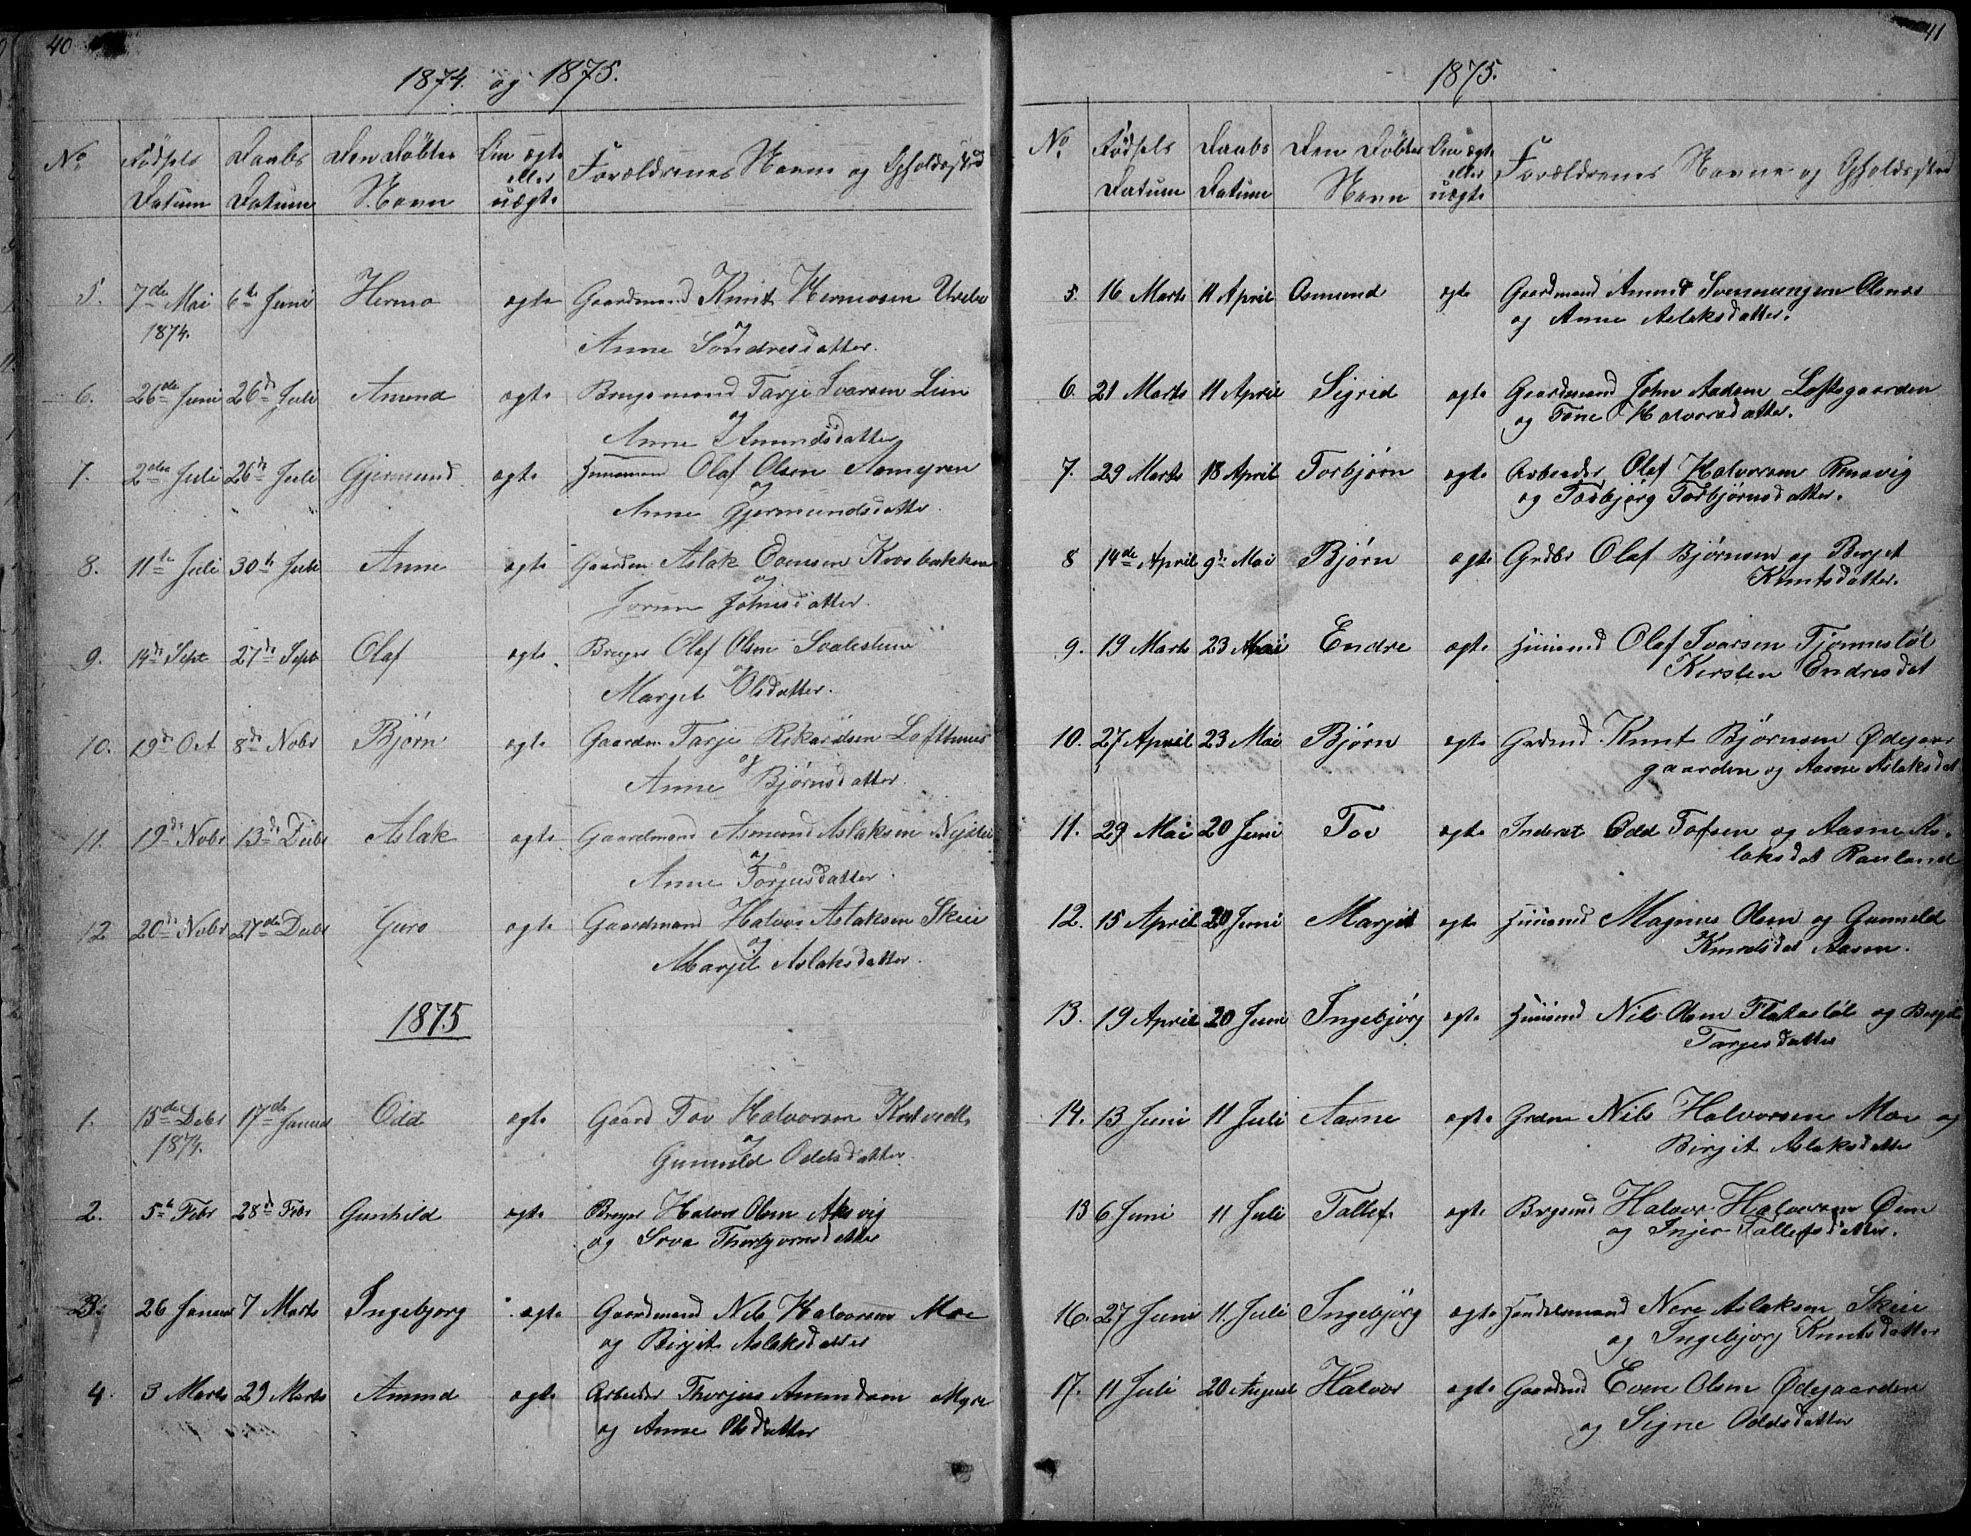 40
1874. og 1875.
No Fødsels Daabs Den Døbtes Om ægte Forældrenes Navne og Opholdssted
eller
Datum Datum Navn uægte
5. 7de Mai 6te Juni Hermo ægte Gaardmand Knut Hermosen
1874. og
Anne Sondresdatter.
6. 26de Juni 26de Juli Amund ægte Brugsmand Tarje Ivarsen Lien
og
Anne Amundsdatter
7. 2den Juli 26de Juli Gjermund ægte Huusmand Olaf Olsen Aamyren
og
Anne Gjermundsdatter.
8. 11te Juli 30te Juli Anne ægte Gaardm Aslak Krosbakken
og
Jorun Johnsdatter.
9. 14de Sept 27de Sept Olaf ægte Bruger Olaf Olsen
og
Margit Olsdatter.
10. 19de Oct 8de Nobr Bjørn ægte Gaardm Tarje Rikardsen Lofthuus
og
Anne Bjørnsdatter.
11. 19de Nobr 13de Debr Aslak ægte Gaardmand Asmund Aslaksen
og
Anne Torjusdatter.
12 20de Nobr 27de Debr Guro ægte Gaardmand Halvor Aslaksen Skeie
og
Margit Aslaksdatter.
1875
1. 15de Debr 17de Januar Odd ægte Gaard Tov Halvorsen
1874. og
Gunnild Oddsdatter.
2. 5te Febr 28de Febr Gunhild ægte Bruger Halvor Olsen Aksvig
og Thorbjørnsdatter
3. 26 Januar 7 Marts Ingebjorg ægte Gaardmand Nils Halvorsen Moe
og Birgit Aslaksdatter
4. 3 Marts 29 Marts Amund ægte Arbeider Thorjus Amundsen Myre
og Anne Olsdatter
41
1875.
No. Fødsels Daabs Den Døbtes Om ægte Forældrenes Navne og Opholdssted
eller
Datum Datum Navn uægte
5. 16 Marts 11 April Osmund ægte Gaardmand Amund Svenungsen
og Anne Aslaksdatter.
6. 21 Marts 11 April Sigrid ægte Gaardmand John Aadsen Loftsgaarden
og Tone Halvorsdatter.
7. 29 Marts 18 April Torbjørn ægte Arbeider Olaf Halvorsen
og Torbjørg Torbjørnsdatter.
8 14de April 9de Mai Bjørn ægte Grdbr Olaf Bjørnsen og Birgit
Knutsdatter.
9. 19 Marts 23 Mai Endre ægte Huusmd Olaf Ivarsen Tjønnestøl
Kirsten Endresdat
10. 27 April 23 Mai Bjørn ægte Grdmd Knut Bjørnsen
gaarden og Aasne Aslaksdat
11. 29 Mai 20 Juni Tov ægte Inderst Odd Tofsen og Aasne As-
laksdat Rauland
12. 15 April 20 Juni Margit ægte Huusmd Magnus Olsen og Gunnild
Knutsdat Aasen.
13. 19 April 20 Juni Ingebjørg ægte Huusmd Nils Olsen Flatastøl og Birgit
Targesdatter
14. 13 Juni 11 Juli Aasne ægte Grdm Nils Halvorsen Moe og
Birgit Aslaksdatter
15 6 Juni 11 Juli Tallef. ægte Brgsmd Halvor Halvorsen Øien
og Inger Tallefsdatter.
16. 27 Juni 11. Juli Ingebjørg ægte Handelsmand Nere Aslaksen Skeie
og Ingebjorg Knutsdatter
17. 11 Juli 20 August Halvor ægte Gaardmd Even Olsen Ødegaarden
og Signe Oddsdatter